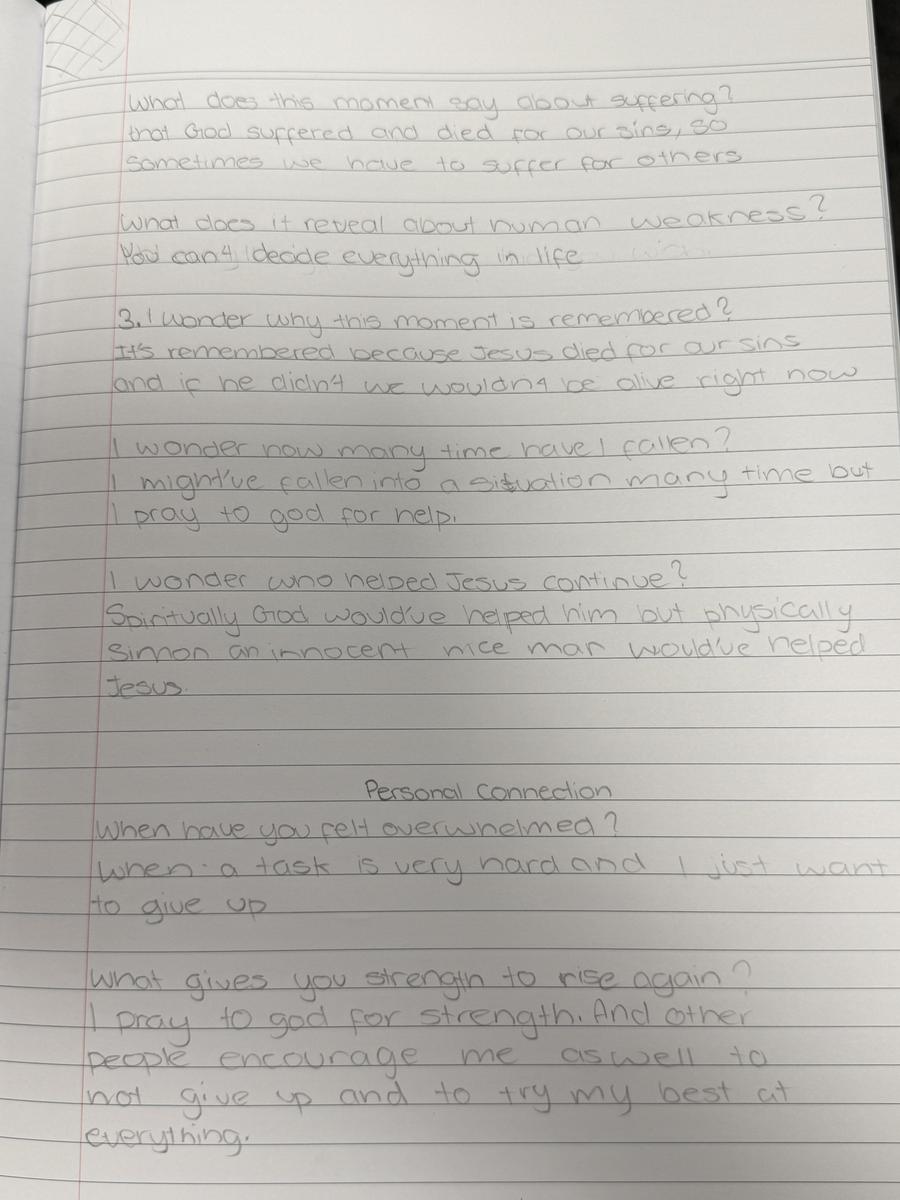 What does this moment say about suffering?
that God suffered and died for our sins, so
sometimes we have to suffer for others
What does it reveal about human weakness?
You can't decide everything in life
3. I wonder why this moment is remembered?
It's remembered because Jesus died for our sins
and if he didn't we wouldn't be alive right now
I wonder how many time have I fallen?
I might've fallen into a situation many time but
I pray to god for help.
I wonder who helped Jesus continue?
Spiritually God would've helped him but physically
Simon an innocent nice man would've helped
Jesus.
Personal connection
When have you felt overwhelmed?
When a task is very hard and I just want
to give up
What gives you strength to rise again?
I pray to god for strength. And other
people encourage me aswell to
not give up and to try my best at
everything.